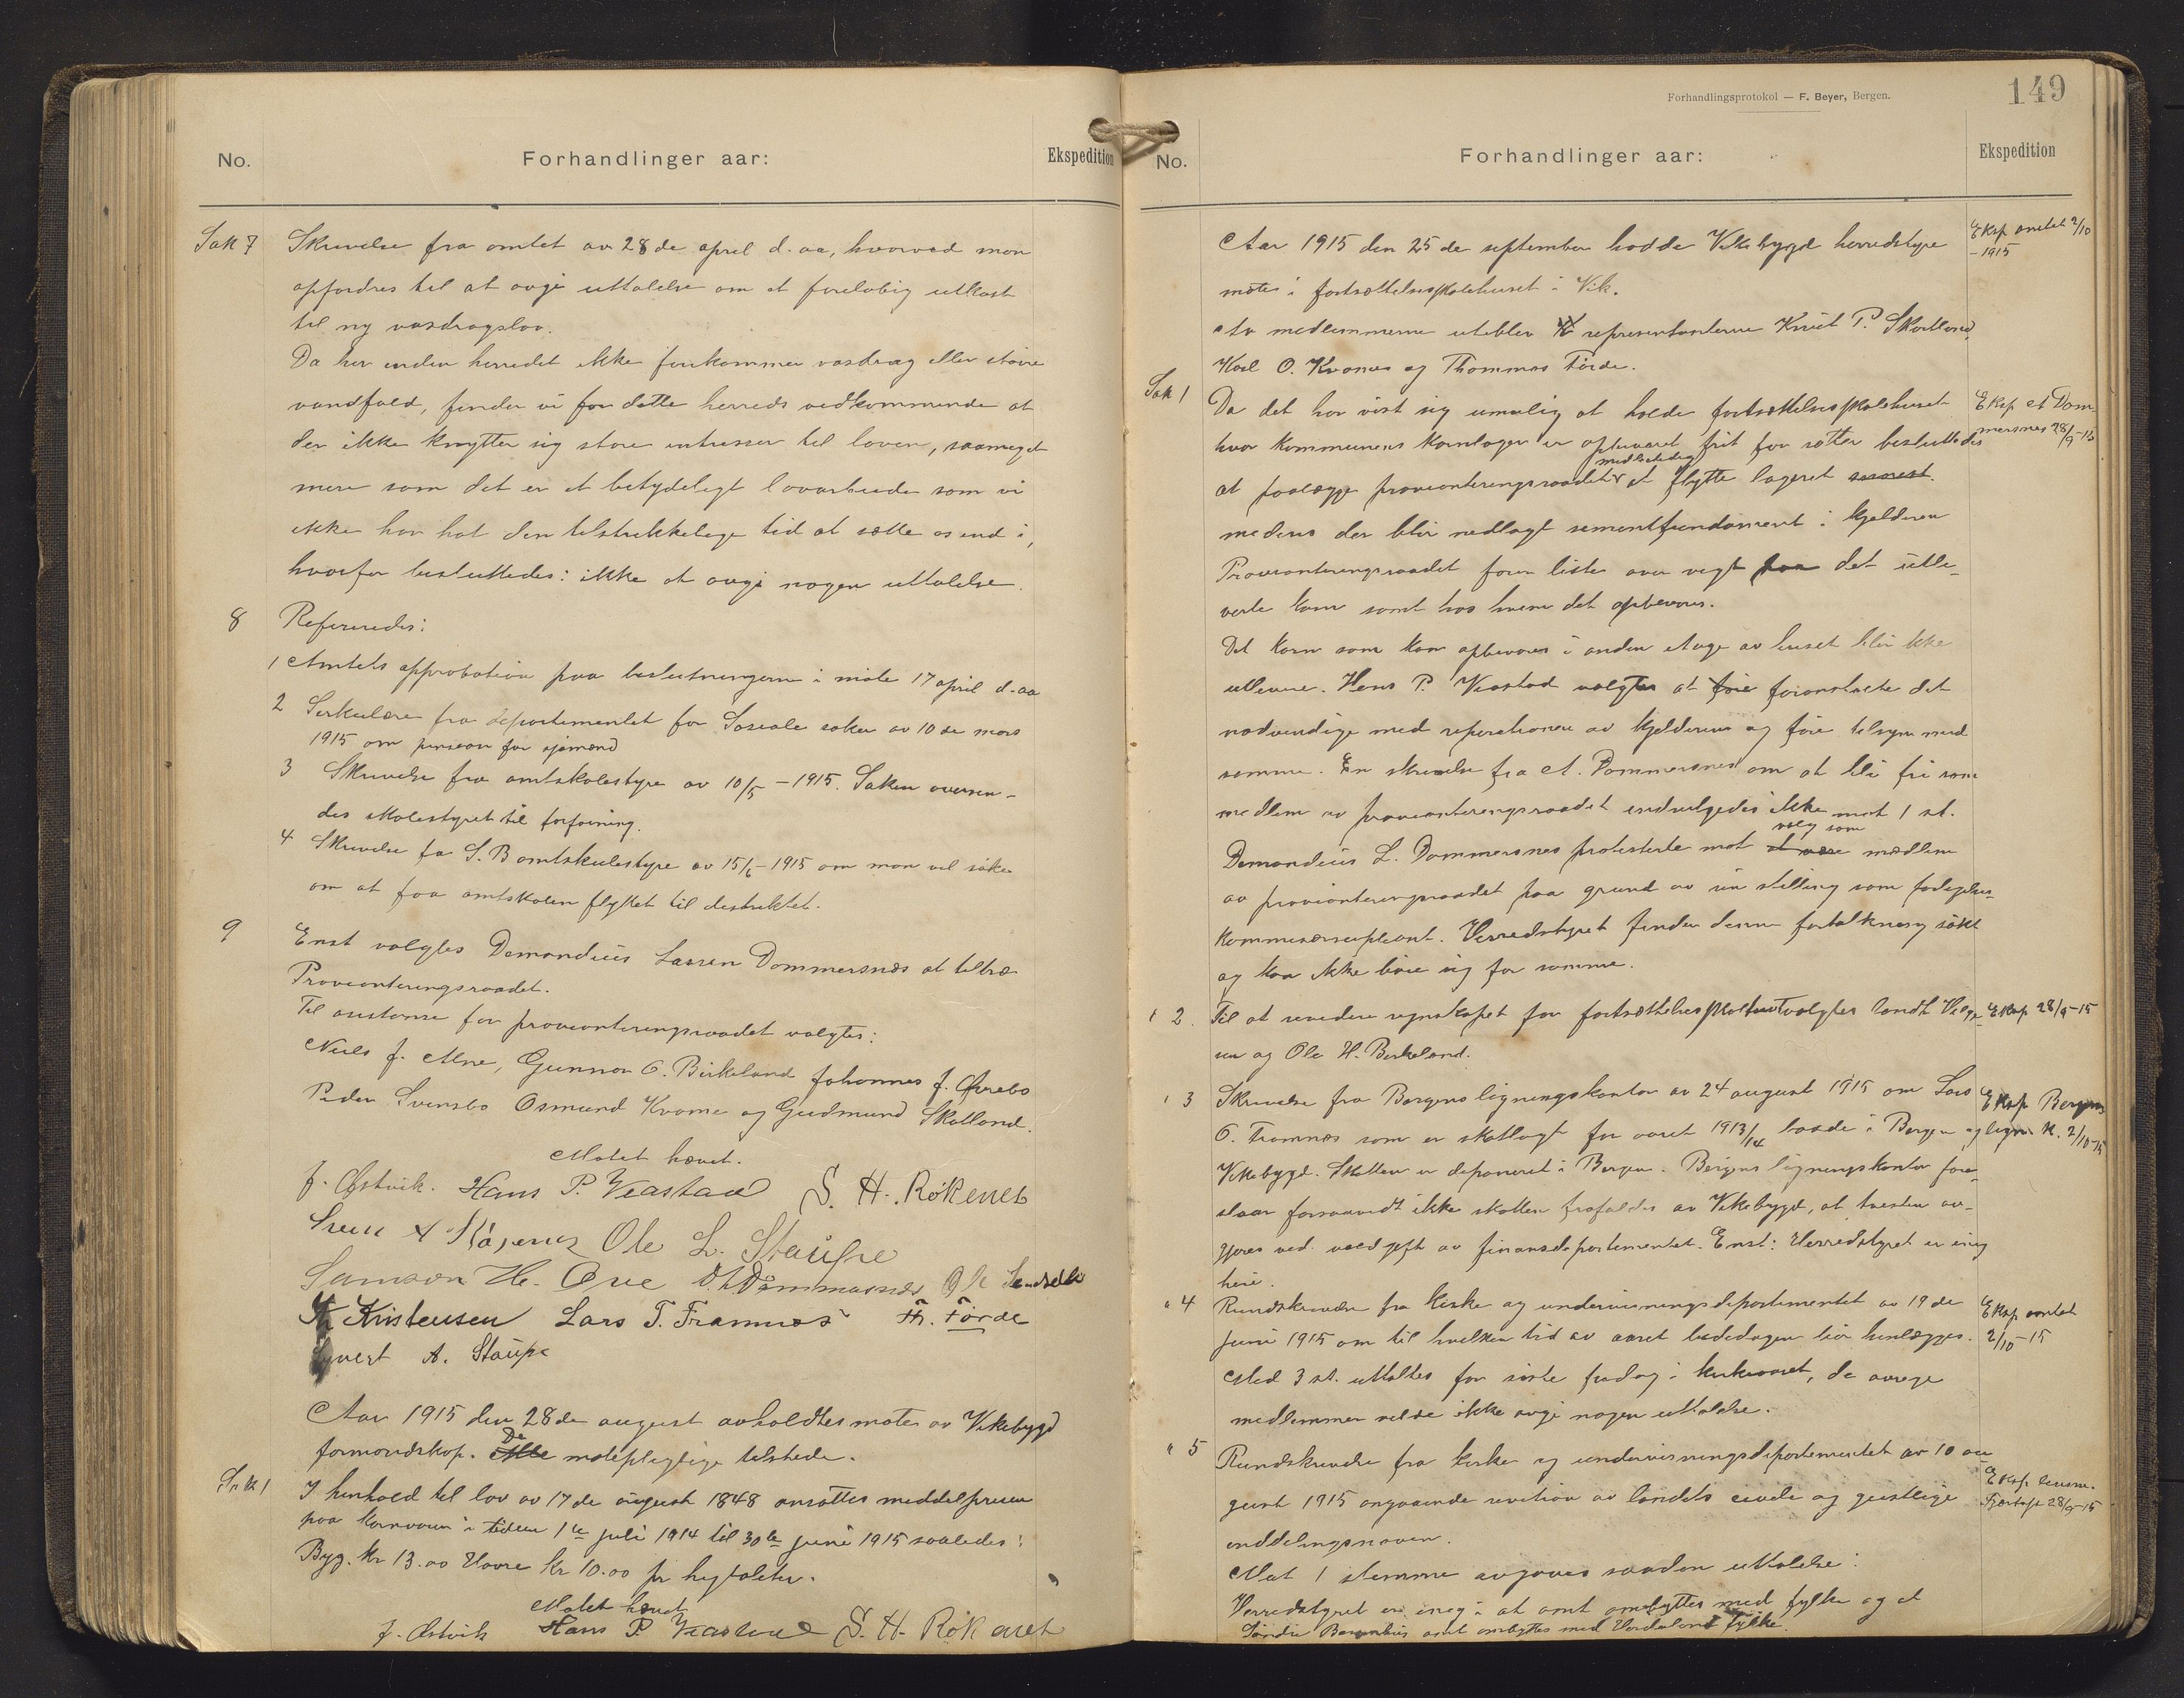 No.
Forhandlinger aar:
Ekspedition
Sak 7
Skrivelse fra amtet av 28de april d. aa, hvorved man
opfordres til at avgi uttalelse om et foreløbig utkast
til ny vasdragslov.
Da her inden herredet ikke forekommer vasdrag eller større
vandfald, finder vi for dette herreds vedkommende at
der ikke knytter sig store intresser til loven, saameget
mere som det er et betydeligt lovarbeide som vi
ikke har hat den tilstrekkelige tid at sætte os ind i,
hvorfor besluttedes: ikke at avgi nogen uttalelse.
8
Refereredes:
1 Amtets approbation paa beslutningerne i møte 17 april d. aa
2 Serkulære fra departementet for Sosiale saker av 10de mars
1915 om pension for sjømænd
3 Skrivelse fra amtskolestyre av 10/5 - 1915. Saken oversen-
des skolestyret til forføining.
4 Skrivelse fra S. B amtskulestyre av 15/6 - 1915 om man vil søke
om at faa amtskolen flyttet til destriktet.
9
Enst valgtes Demandius Larsen Dommersnes at tiltræ
Provianteringsraadet.
Til assistanse for provianteringsraadet valgtes:
Niels J. Alne, Gunnar O. Birkeland Johannes J. Øvrebø
Peder Svensbø Osmund Kvame og Gudmund Skatland.
Møtet hævet.
J. Østvik. Hans P. Veastad S. H. Røkenes
Ole L. Staupe
Samson H. Øve D. L. Dommersnes Ole
Kristensen Lars T. Framnes Th. Førde
Syvert A. Staupe
Aar 1915 den 28de august avholdtes møte av Vikebygd
formandskap. Alle De møtepligtige tilstede.
Sak 1
I henhold til lov av 17de august 1848 ansattes middelprisen
paa kornvarer i tiden 1te juli 1914 til 30te juni 1915 saaledes:
Byg. kr 13.00 Havre kr 10.00 pr hegtoliter.
Møtet hævet
J. Østvik Hans P. Veastad S. H. Røkenes
Forhandlingsprotokol — F. Beyer, Bergen.
149
No.
Forhandlinger aar:
Ekspedition
Aar 1915 den 25de september hadde Vikebygd herredstyre
Eksp amtet 2/10
- 1915
møte i fortsættelsesskolehuset i Vik.
Av medlemmerne uteblev representanterne Knut P. Skartland,
Karl O. Kvames og Thommas Førde.
Sak 1
Da det har vist sig umulig at holde fortsættelsesskolehuset
Eksp et Dom
mersnes 28/9-15
hvor kommunens kornlager er opbevaret frit for rotter besluttedes
at paalægge provianteringsraadet at flytte lageret snarest
medens der blir nedlagt sementfundament i kjelderen
Provianteringsraadet fører liste over vegt paa det utle-
verte korn samt hos hvem det opbevares.
Det korn som kan opbevares i anden etage av huset blir ikke
utlevere. Hans P. Veastad valgtes at føre foranstalte det
nødvendige med reperationen av kjelderen og føre tilsyn med
samme. En skrivelse fra A. Dommersnes om at bli fri som
medlem av provianteringsraadet indvilgedes ikke mot 1 st.
valg som
Demandius L. Dommersnes protesterte mot at være medlem
av provianteringsraadet paa grund av sin stilling som forligelses-
kommisærsupleant. Herredstyret finder denne fortolkning søkt
og kan ikke bøie sig for samme.
" 2.
Til at revidere regnskapet for fortsættelsesskolehuset valgtes landh.
Eksp 28/9-15
og Ole H. Birkeland.
" 3
Skrivelse fra Bergens ligningskontor av 24 august 1915 om Lars
Eksp Bergens
O. Framnæs som er skatlagt for aaret 1913/14 baade i Bergen og
lign. k. 2/10-15
Vikebygd. Skatten er deponeret i Bergen. Bergens ligningskontor fore-
slaar forsaavidt ikke skatten frafaldes av Vikebygd, at tvisten av-
gjøres ved voldgift av finansdepartementet. Enst: Herredstyret er enig
heri.
" 4
Rundskrivelse fra kirke og undervisningsdepartementet av 19de
Eksp amtet
juni 1915 om til hvilken tid av aaret bededagen bør henlægges.
2/10-15
Med 3 st. uttaltes for siste fredag i kirkeaaret, de øvrige
medlemmer vilde ikke avgi nogen uttalelse.
" 5
Rundskrivelse fra kirke og undervisningsdepartementet av 10 au
Eksp lensm.
gust 1915 angaaende revition av landets civile og geistlige
28/9-15
inddelingsnavn.
Mot 1 stemme avgaves saadan uttalelse:
Herredstyret er enig i at amt ombyttes med fylke og at
Søndre Bergenhus amt ombyttes med Hordaland fylke.